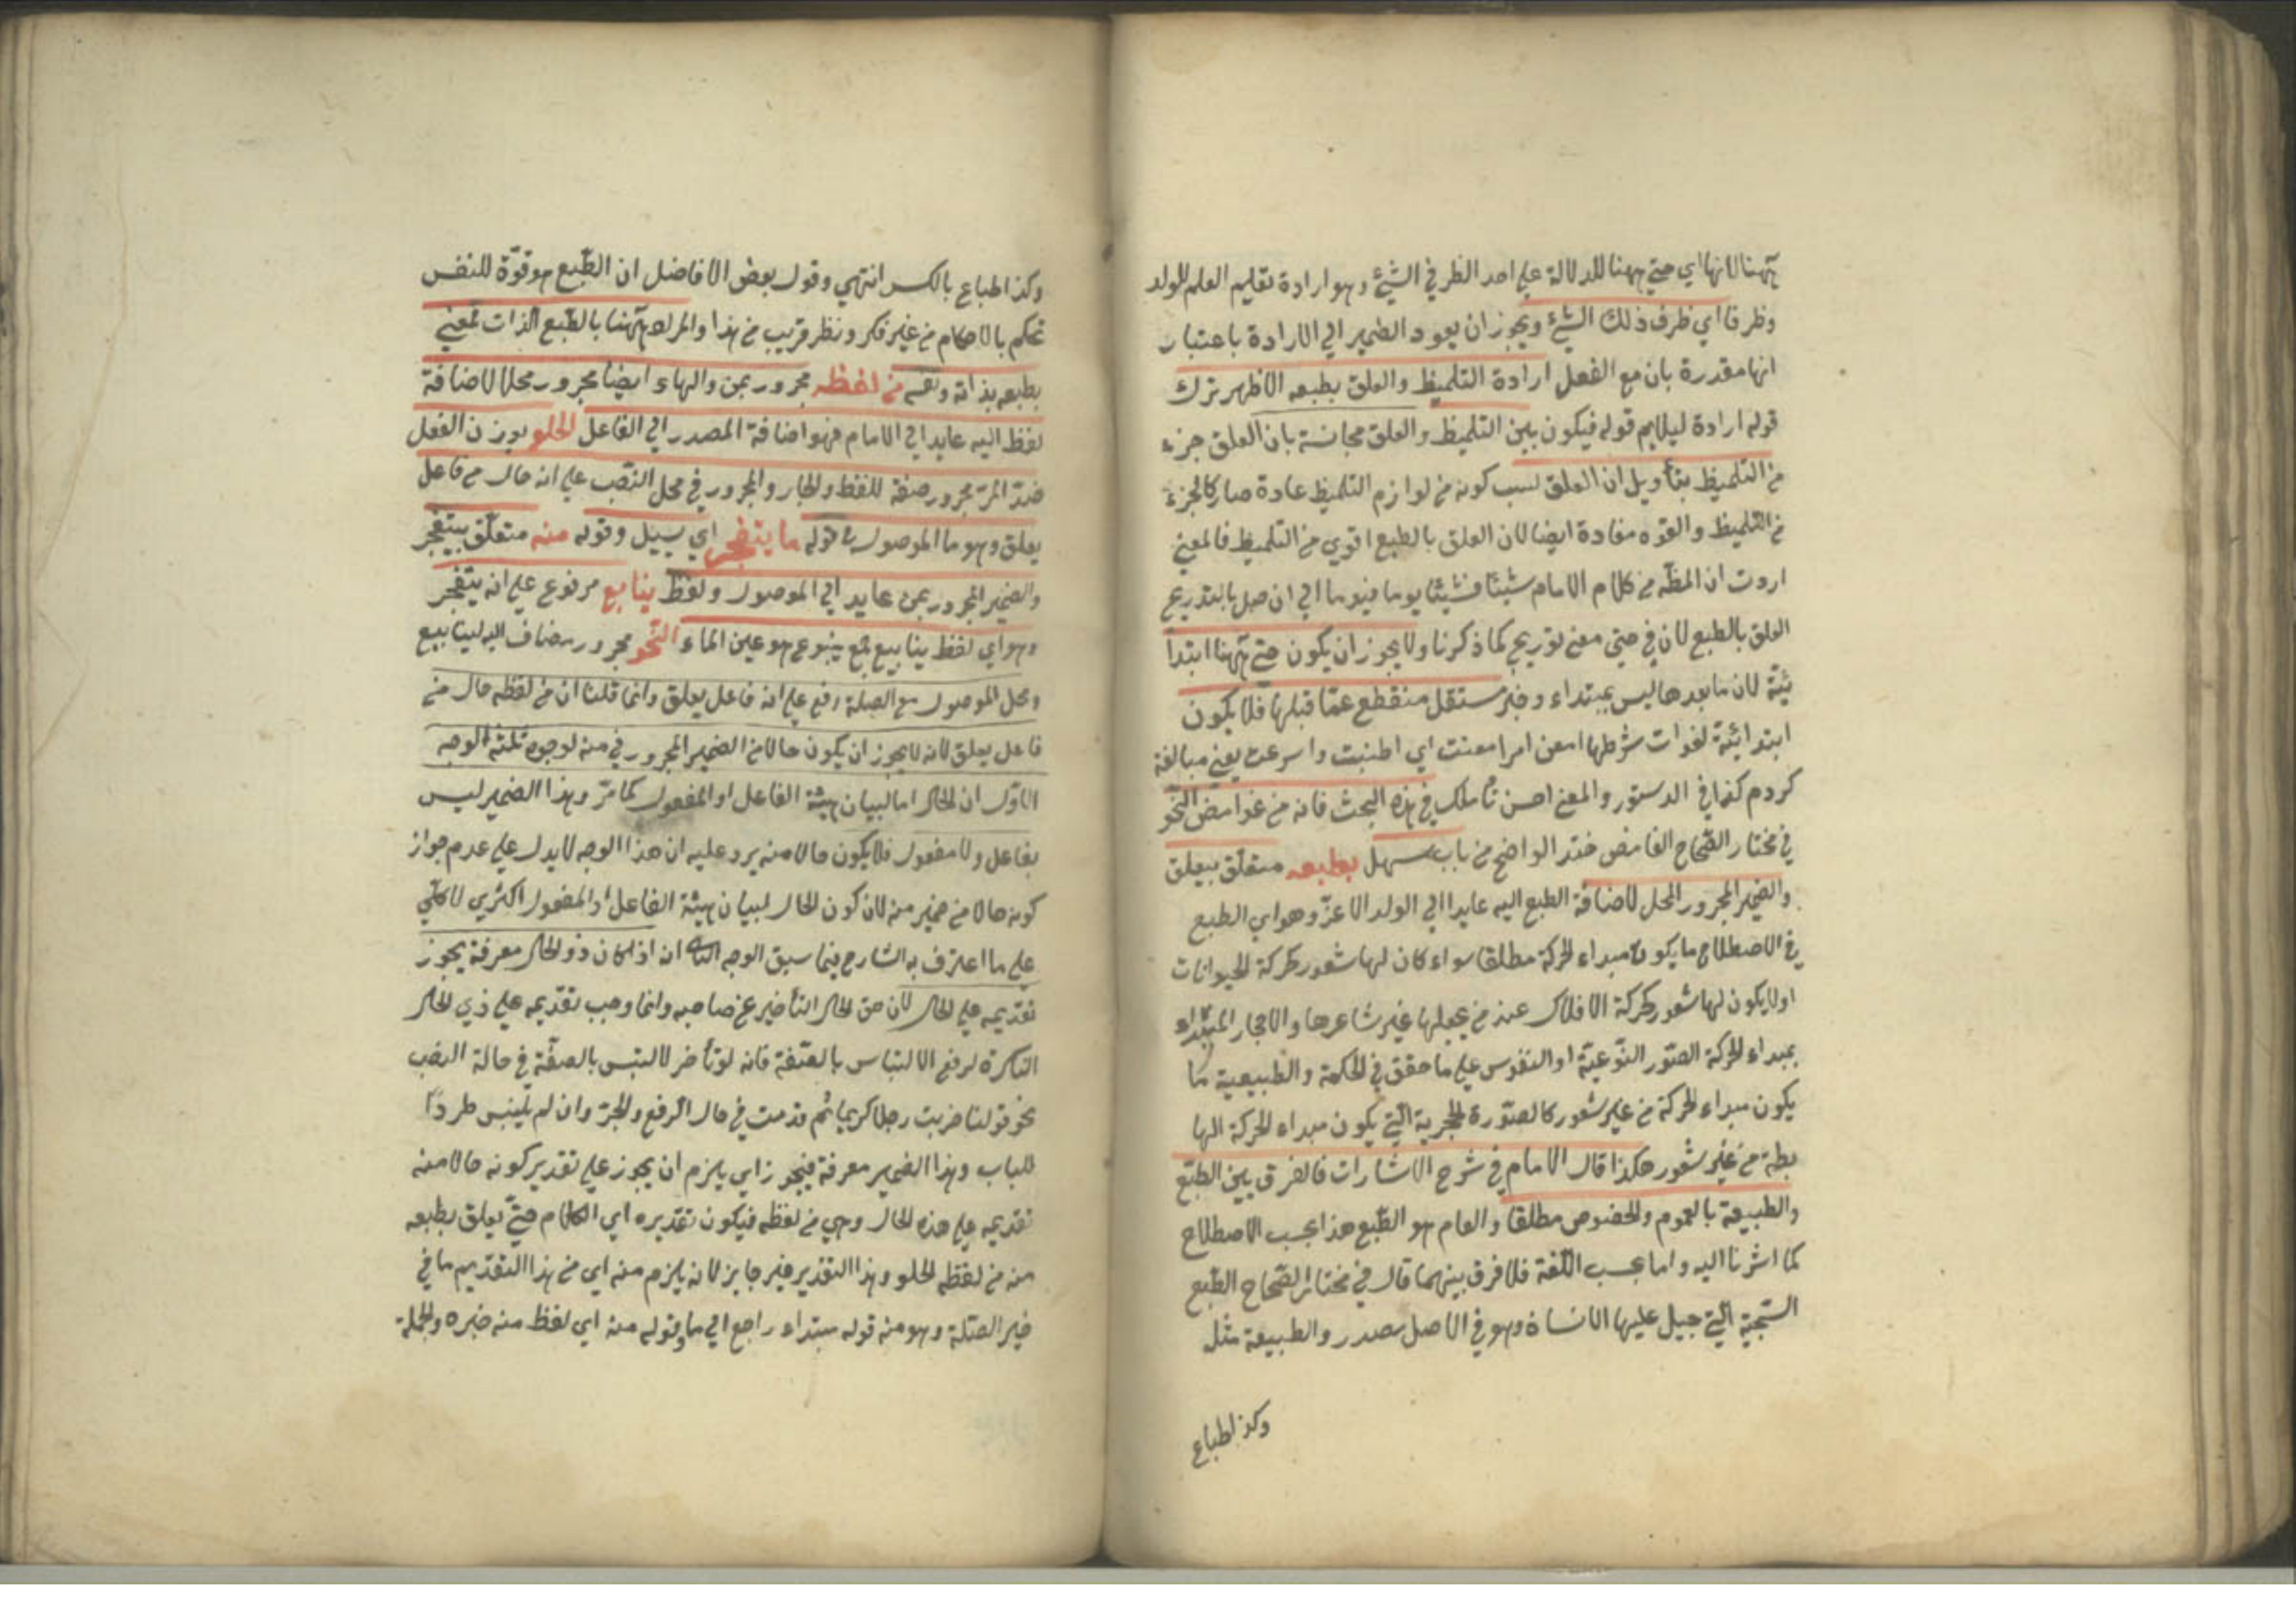 ههنا لانها اي حتي ههنا للدلالة علي احد النظر في الشيئ وهو ارادة تعليم العلم للولد
وظرفا اي ظرف ذلك الشيئ ويجوز ان يعود الضمير الي الارادة باعتبار
انها مقدرة بان مع الفعل ارادة التلميظ والعلق بطبعه الاظهر ترك
قوله ارادة ليلايم قوله فيكون بين التلميظ والعلق مجانسة بان العلق جزء
من التلميظ بتأويل ان العلق لسبب كونه من لوازم التلميظ عادة صار كالجزء
من التلميظ والقوة مفادة ايضا لان العلق بالطبع اقوي من التلميظ فالمعني
اردت ان المظه من كلام الامام شيئا فشيئا يوما فيوما الي ان حصل بالتدريج
العلق بالطبع لان في حتي معني تدريج كما ذكرنا ولا يجوز ان يكون حتي ههنا ابتدا
ئية لان ما بعدها ليس بمبتداء وخبر مستقل منقطع عما قبلها فلا يكون
ابتدائية لفوات شرطها امعن امرا معنت اي اطنبت واسرعت يعني مبالغة
كردم كذا في الدستور والمعني احسن تأملك في هذه البحث فانه من غوامض النحو
في مختار الصحاح الغامض ضد الواضح من باب سهل بطبعه متعلق بيعلق
والضمير المجرور المحل لاضافة الطبع اليه عايد الي الولد الاعز وهو اي الطبع
في الاصطلاح ما يكون مبداء لحركة مطلقا سواء كان لها شعور كحركة الحيوانات
اولا يكون لها شعور كحركة الافلاك عند من يجعلها غير شاعرها والاحجار المبتداء
بمبداء الحركة الصور النوعية او النفوس علي ما حقق في الحكمة والطبيعية ما
يكون مبداء لحركة من غير شعور كالصورة الحجرية التي يكون مبداء لحركة الها
بطة من غير شعور هكذا قال الامام في شرح الاشارات فالفرق بين الطبع
والطبيعة بالعموم والخصوص مطلقا والعام هو الطبع هذا بحسب الاصطلاح
كما اشرنا اليه واما بحسب اللغة فلا فرق بينهما قال في مختار الصحاح الطبع
السجية التي جبل عليها الانسان وهو في الاصل مصدر والطبيعة مثله
وكذا طباع
وكذا طباع بالكسر انتهي وقول بعض الافاضل ان الطبع هو قوة للنفس
تحكم بالاحكام من غير فكر ونظر قريب من هذا والمراد ههنا بالطبع الذات لمعني
بطبعه بذاته ونفسه من لفظه مجرور بمن والهاء ايضا مجرور محلا لاضافة
لفظ اليه عايد الي الامام فهو اضافة المصدر الي الفاعل الحلو بوزن الفعل
ضد المر مجرور صفة للفظ والجار والمجرور في محل النصب علي انه حال من فاعل
يعلق وهو ما الموصول في قوله ما يتفجر اي يسيل وقوله منه متعلق بيتفجر
والضمير المجرور بمن عايد الي الموصول ولفظ ينابيع مرفوع علي انه يتفجر
وهو اي لفظ ينابيع جمع ينبوع هو عين الماء النحو مجرور مضاف اليه لينابيع
ومحل الموصول مع الصلة رفع علي انه فاعل يعلق وانما قلنا ان من لفظه حال من
فاعل يعلق لانه لا يجوز ان يكون حالا من الضمير المجرور في منه لوجوه ثلثة الوجه
الاول ان الحال اما لبيان هيئة الفاعل او المفعول كما مر وهذا الضمير ليس
بفاعل ولا مفعول فلا يكون حالا منه يرد عليه ان هذا الوجه لا يدل علي عدم جواز
كونه حالا من ضمير منه لان كون الحال لبيان هيئة الفاعل او المفعول اكثري لا كلي
علي ما اعترف به الشارح فيما سبق الوجه الثاني ان اذا كان ذو الحال معرفة يجوز
تقديمه علي الحال لان حق الحال التأخير عن صاحبه وانما وجب تقديمه علي ذي الحال
النكرة لرفع الالتباس بالصفة فانه لو تأخر لالتبس بالصفة في حالة النصب
نحو قولنا ضربت رجلا كريما ثم قدمت في حال الرفع والجر وان لم يلتبس طردا
للباب وهذا الضمير معرفة فيجوز اي يلزم ان يجوز علي تقدير كونه حالا منه
تقديمه علي هذه الحال وهي من لفظه فيكون تقديره اي الكلام حتي يعلق بطبعه
منه من لفظه الحلو وهذا التقدير غير جايز لانه يلزم منه اي من هذا التقديم ما في
خبر الصلة وهو منه قوله مبتداء راجع الي ما وقوله منه اي لفظ منه خبره والجملة